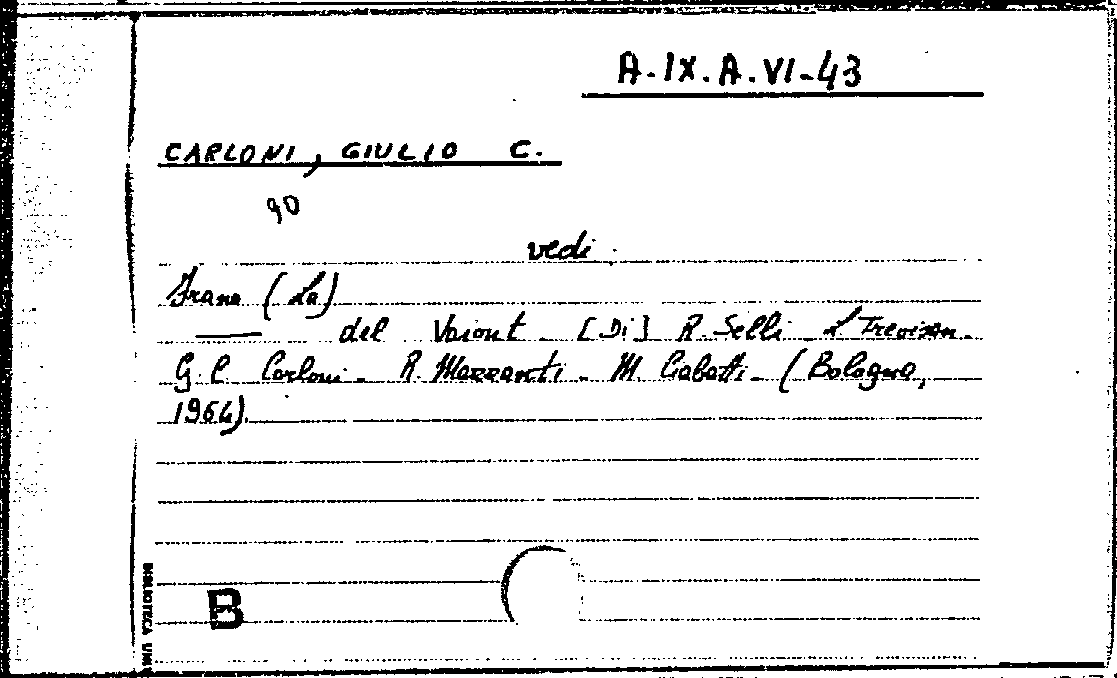 A.IX.A.VI-43
CARLONI, GIULIO C.
90
vedi:
Frana (La)
del Vaiont. [Di] R. Selli. L Trevisan.
G.C. Carloni. R. Mazzanti. M. Ciabatti. (Bologna,
1964).
B
BIBLIOTECA